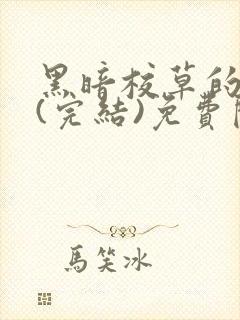 黑暗校草的
(完結)免費
馬笑冰